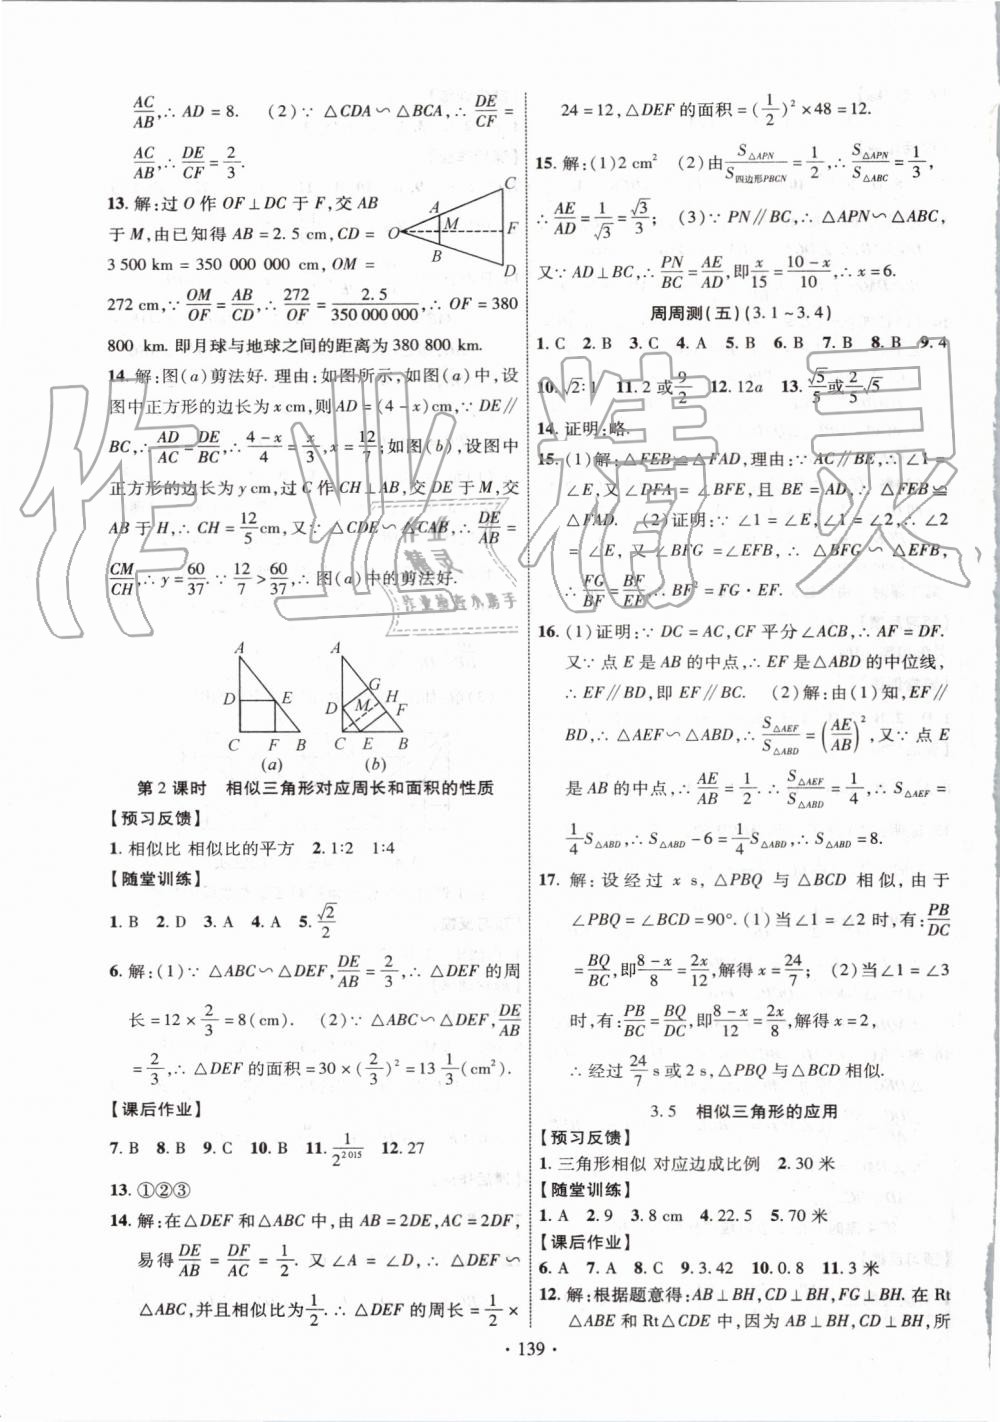 AC/AB,∴ AD=8. (2)∵ △CDA∽△BCA,∴ DE/CF=
AC/AB,∴ DE/CF=2/3.
13.解:过 O 作 OF⊥DC 于 F,交 AB
于 M,由已知得 AB=2.5 cm,CD=
3 500 km=350 000 000 cm,OM=
272 cm,∵ OM/OF=AB/CD,∴ 272/OF=2.5/350 000 000,∴ OF=380
800 km.即月球与地球之间的距离为 380 800 km.
O A B M C F D
14.解:图(a)剪法好.理由:如图所示,如图(a)中,设
图中正方形的边长为 x cm,则 AD=(4-x)cm,∵ DE∥
BC,∴ AD/AC=DE/BC,∴ (4-x)/4=x/3,x=12/7;如图(b),设图中
正方形的边长为 y cm,过 C 作 CH⊥AB,交 DE 于 M,交
AB 于 H,∴ CH=12/5 cm,∵ △CDE∽△CAB,∴ DE/AB=
CM/CH,∴ y=60/37.∵ 12/7>60/37,∴ 图(a)中的剪法好.
A D E C F B (a)
A G H D M F C E B (b)
第 2 课时 相似三角形对应周长和面积的性质
【预习反馈】
1.相似比 相似比的平方 2.1∶2 1∶4
【随堂训练】
1.B 2.D 3.A 4.A 5.√2/2
6.解:(1)∵ △ABC∽△DEF,DE/AB=2/3,∴ △DEF 的周
长=12×2/3=8(cm). (2)∵ △ABC∽△DEF,DE/AB
=2/3,∴ △DEF 的面积=30×(2/3)²=13 1/3(cm²).
【课后作业】
7.B 8.B 9.C 10.B 11.1/2²⁰¹⁵ 12.27
13.①②③
14.解:在△DEF 和△ABC 中,由 AB=2DE,AC=2DF,
易得 DE/AB=DF/AC=1/2. 又∠A=∠D,∴ △DEF∽
△ABC,并且相似比为 1/2.∴ △DEF 的周长=1/2×
24=12,△DEF 的面积=(1/2)²×48=12.
15.解:(1)2 cm² (2)由 S△APN/S四边形PBCN=1/2,∴ S△APN/S△ABC=1/3,
∴ AE/AD=1/√3=√3/3; (3)∵ PN∥BC,∴ △APN∽△ABC,
又∵ AD⊥BC,∴ PN/BC=AE/AD,即 x/15=(10-x)/10,∴ x=6.
周周测(五)(3.1~3.4)
1.C 2.B 3.C 4.A 5.B 6.B 7.B 8.B 9.4
10.√2∶1 11.2 或 9/2 12.12a 13.√5/5 或 2/5√5
14.证明:略.
15.(1)解:△FEB≌△FAD,理由:∵ AC∥BE,∴ ∠1=
∠E,又∠DFA=∠BFE,且 BE=AD,∴ △FEB≌
△FAD. (2)证明:∵ ∠1=∠E,∠1=∠2,∴ ∠2
=∠E,又∠BFG=∠EFB,∴ △BFG∽△EFB,
∴ FG/BF=BF/EF,∴ BF²=FG·EF.
16.(1)证明:∵ DC=AC,CF 平分∠ACB,∴ AF=DF.
又∵ 点 E 是 AB 的中点,∴ EF 是△ABD 的中位线,
∴ EF∥BD,即 EF∥BC. (2)解:由(1)知,EF∥
BD,∴ △AEF∽△ABD,∴ S△AEF/S△ABD=(AE/AB)²,又∵ 点 E
是 AB 的中点,∴ AE/AB=1/2.∴ S△AEF/S△ABD=1/4,∴ S△AEF=
1/4 S△ABD,∴ S△ABD-6=1/4 S△ABD,∴ S△ABD=8.
17.解:设经过 x s,△PBQ 与△BCD 相似,由于
∠PBQ=∠BCD=90°.(1)当∠1=∠2 时,有:PB/DC
=BQ/BC,即 (8-x)/8=2x/12,解得 x=24/7; (2)当∠1=∠3
时,有:PB/BC=BQ/DC,即 (8-x)/12=2x/8,解得 x=2,
∴ 经过 24/7 s 或 2 s,△PBQ 与△BCD 相似.
3.5 相似三角形的应用
【预习反馈】
1.三角形相似 对应边成比例 2.30 米
【随堂训练】
1.A 2.9 3.8 cm 4.22.5 5.70 米
【课后作业】
6.A 7.A 8.C 9.3.42 10.0.8 11.3 米
12.解:根据题意得:AB⊥BH,CD⊥BH,FG⊥BH.在 Rt
△ABE 和 Rt△CDE 中,因为 AB⊥BH,CD⊥BH,所
·139·
作业精灵
作业
精灵
作业检查小帮手